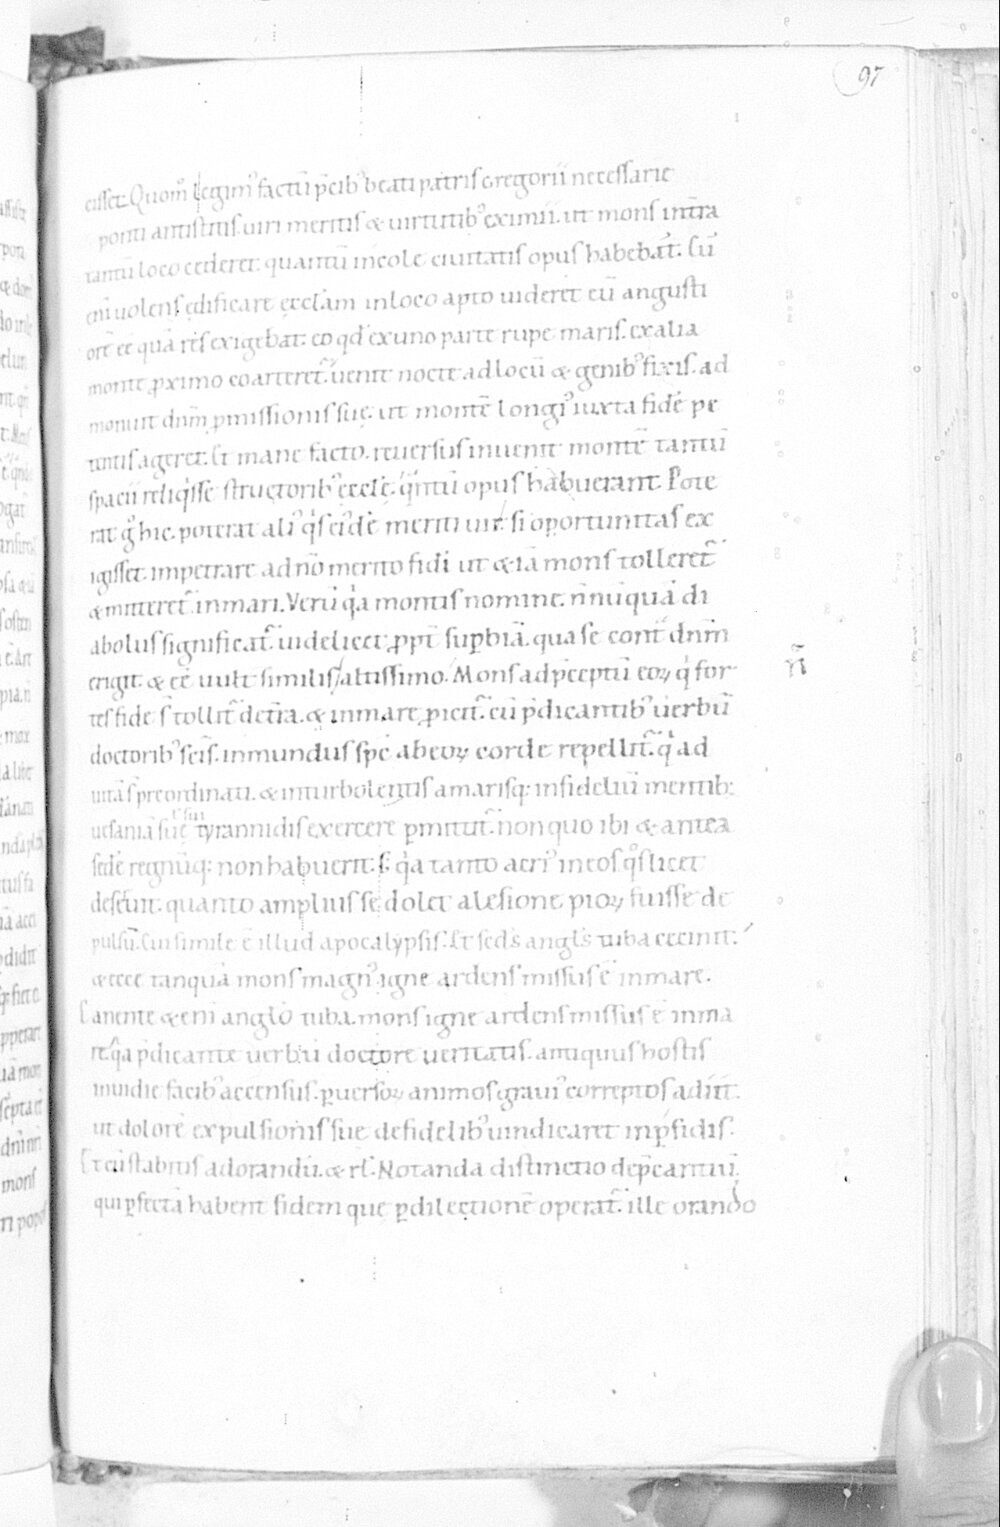 97
eisset. Quom̄ legim' factū p̄cib' beati patris gregorii necessarie
ponti antistitis. viri meritis & virtutib' eximii. ut mons int̄ra
tantū loco cederet. quantū incole civitatis opus habebāt. Cū
eni volens ędificare ecclām in loco apto videret eū angusti
orē eē quā res exigebat. eo qđ ex uno parte rupe maris. ex alia
monte proximo coarteret. venit nocte ad locū & genib' fixis. ad
monuit dn̄m promissionis suę. ut montē longi' iuxta fidē pe
tentis ageret. Et mane facto. reversus invenit montē tantū
spacii reliqisse structorib' ecclē. qntū opus habuerant. Pote
rat g° hic. poterat ali' qs eiusdē meriti vir si oportunitas ex
igisset. impetrare a dn̄o merito fidi ut & iā mons tolleret
& mitteret in mari. Verū qa montis nomine. n̄nūquā di
abolus significat. videlicet ppt supbiā. qua se cont dn̄m
erigit. & eē vult similis altissimo. Mons ad pceptū eoꝝ qi for
tes fide s̄ tollit de tra. & in mare proicit. cū pdicantib' verbū
doctorib' scīs. inmundus spc̄ ab eoꝝ corde repellit. qi ad
vitā s̄ preordinati. & in turbolentis amarisq: infideliū mentib:
vesaniā sue tyrannidis exercere pmittit. non quo ibi & antea
sedē regnūq: non habuerit. s; qa tanto acri' in eos qos licet
desevit. quanto amplius se dolet a lesione pioꝝ fuisse de
pulsū. Cui simile ē illud apocalypsis. Et secds angls tuba cecinit.
& ecce tanquā mons magn' igne ardens missus ē in mare.
Canente & eni anglo tuba. mons igne ardens missus ē in ma
re. qa pdicante verbū doctore veritatis. antiquus hostis
invidie facib' accensus. pversoꝝ animos gravi' correptos adiit.
ut dolorē expulsionis sue de fidelib' vindicaret in pfidis.
Et cū stabitis ad orandū. & rl. Notanda distinctio depcantiū.
qui pfectā habent fidem que p dilectionē operat. ille orando